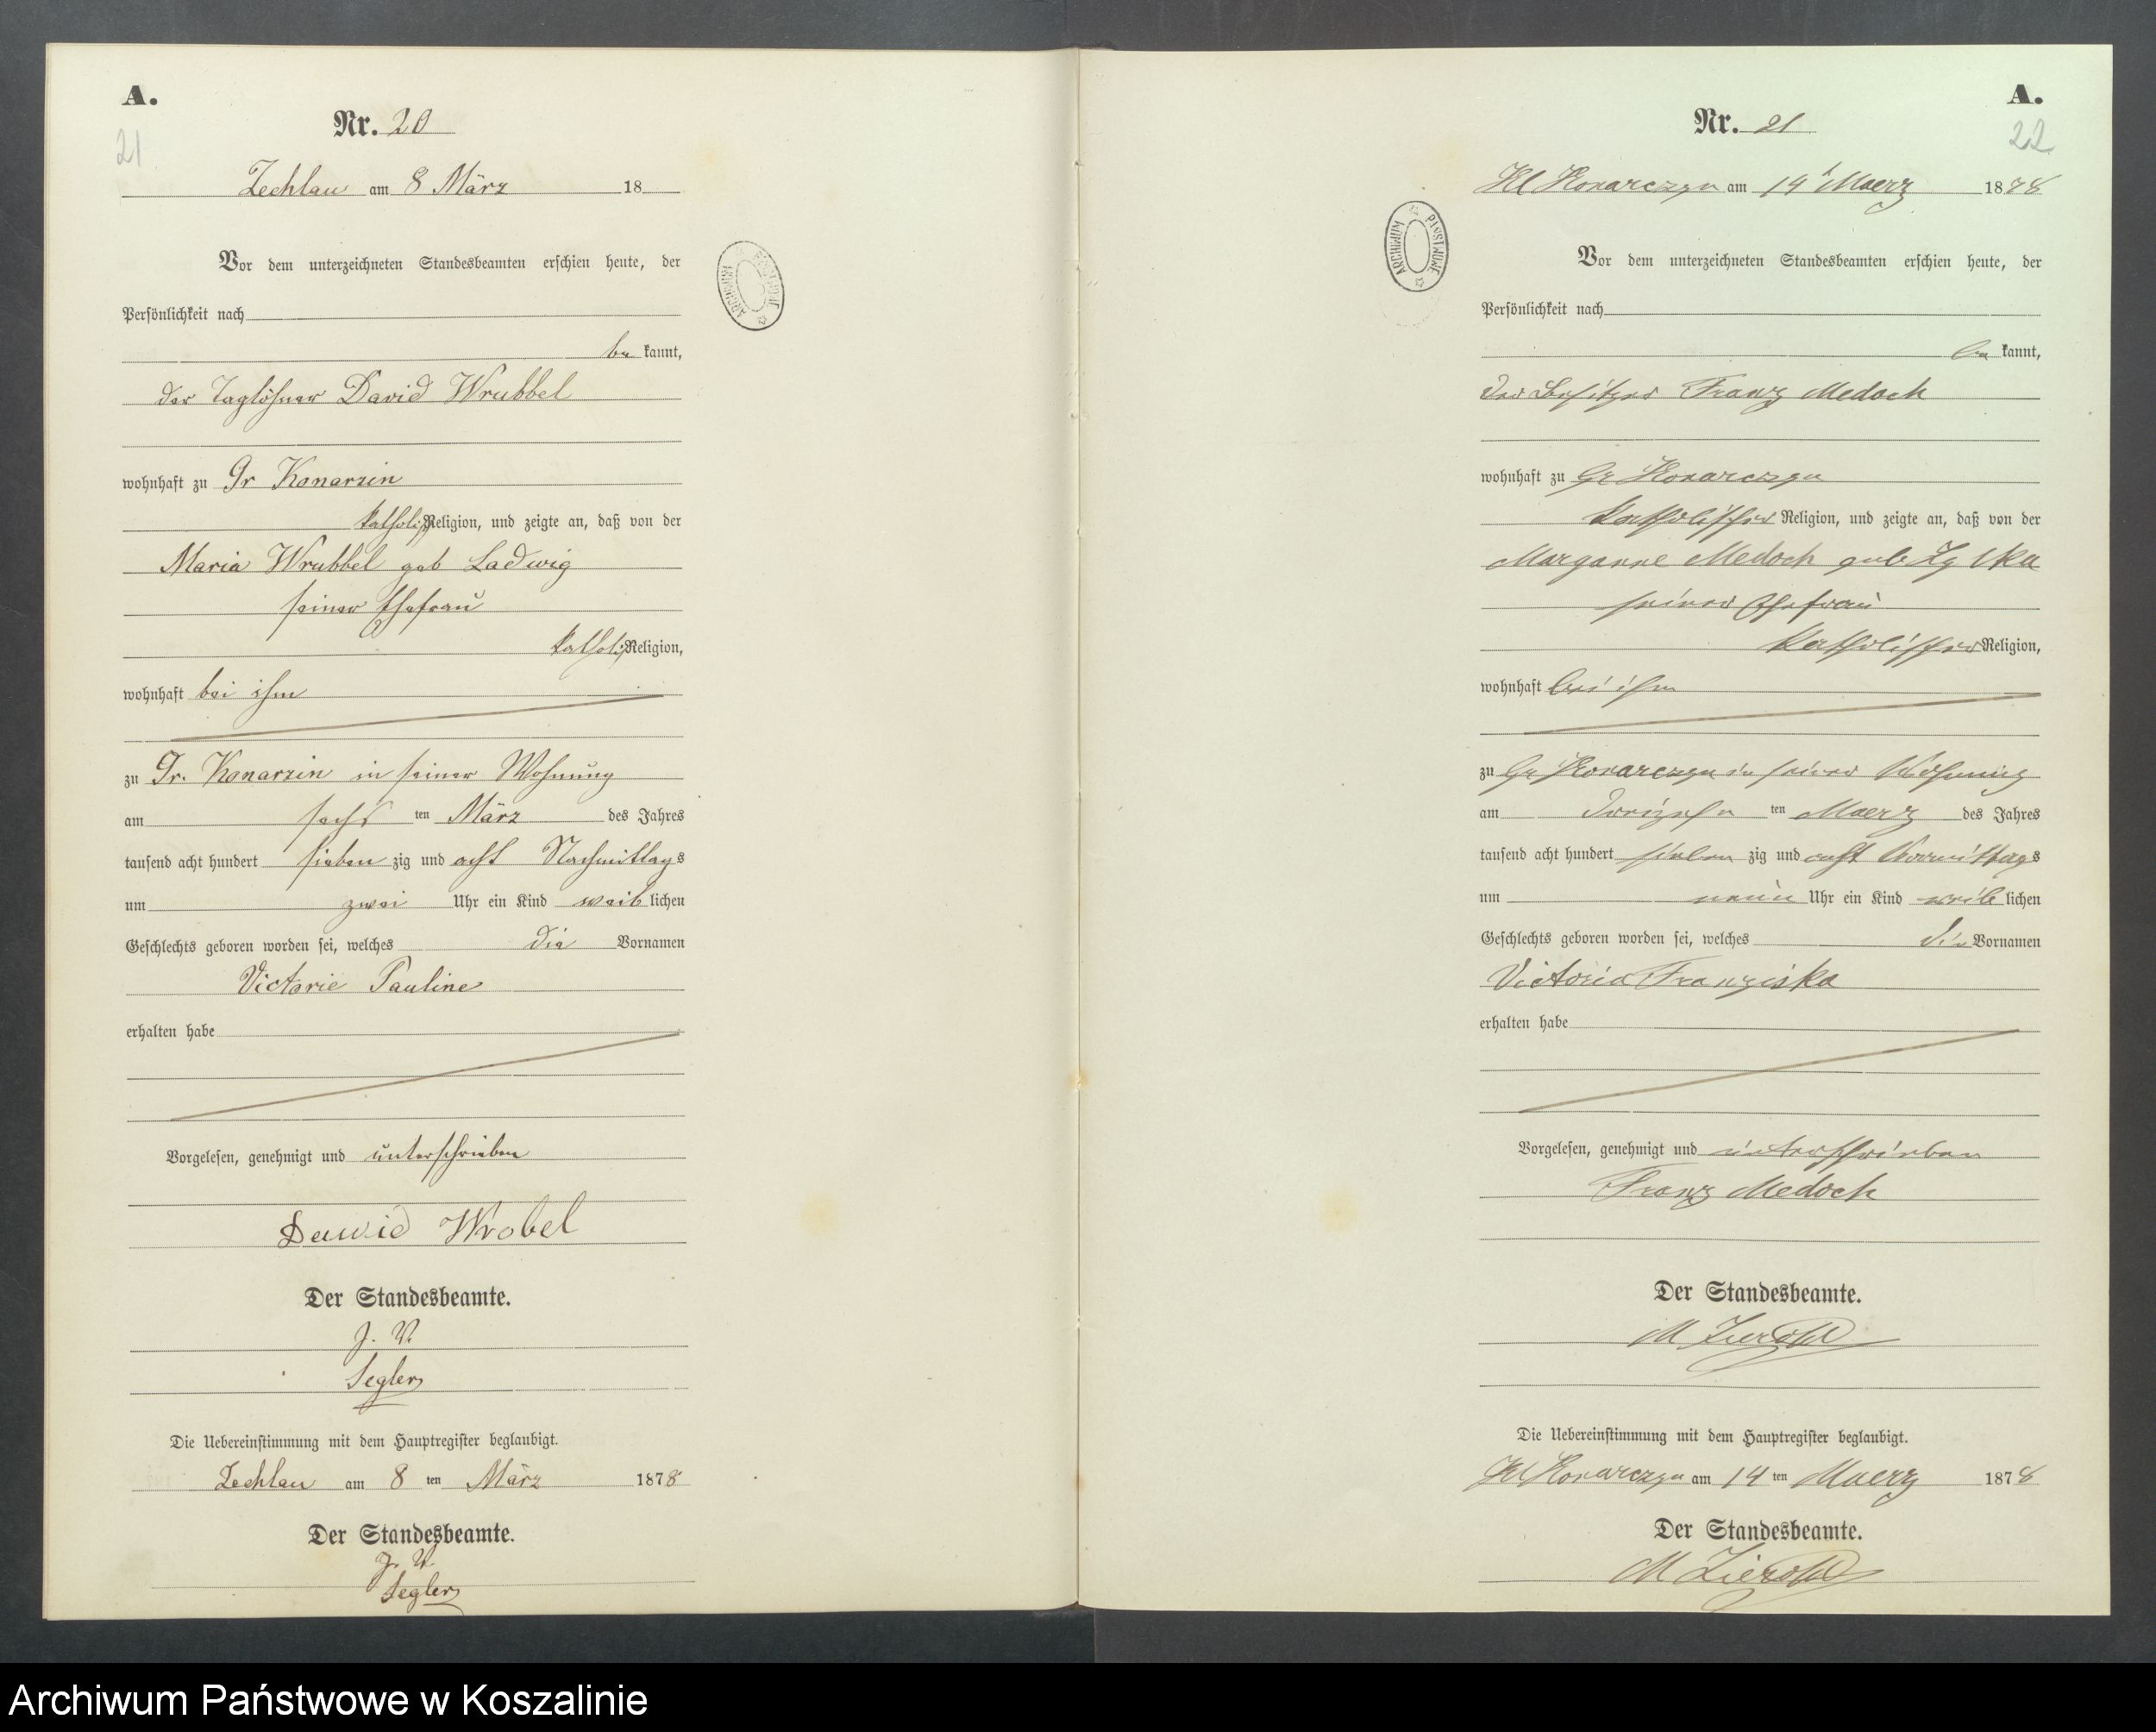 A.
21
Nr. 20
Zechlau am 8 März 18
Vor dem unterzeichneten Standesbeamten erschien heute, der
Persönlichkeit nach
be kannt,
der Taglöhner David Wrubbel
wohnhaft zu Gr Konarzin
katholisch Religion, und zeigte an, daß von der
Maria Wrubbel geb Ladwig
seiner Ehefrau
katholisch Religion,
wohnhaft bei ihm
zu Gr. Konarzin in seiner Wohnung
am sechs ten März des Jahres
tausend acht hundert sieben zig und acht Nachmittags
um zwei Uhr ein Kind weib lichen
Geschlechts geboren worden sei, welches die Vornamen
Victorie Pauline
erhalten habe
Vorgelesen, genehmigt und unterschrieben
Dawid Wrobel
Der Standesbeamte.
J. V.
Segler
Die Uebereinstimmung mit dem Hauptregister beglaubigt.
Zechlau am 8 ten März 1878
Der Standesbeamte.
J. V.
Segler
ARCHIWUM PAŃSTWOWE
A.
22
Nr. 21
Kl Konarczyn am 14 Maerz 1878
Vor dem unterzeichneten Standesbeamten erschien heute, der
Persönlichkeit nach
be kannt,
der Besitzer Franz Medoch
wohnhaft zu Gr Konarczyn
katholischer Religion, und zeigte an, daß von der
Marganne Medoch geb
seiner Ehefrau
katholischer Religion,
wohnhaft bei ihm
zu Gr Konarczyn in seiner Wohnung
am dreizehn ten Maerz des Jahres
tausend acht hundert sieben zig und acht Vormittags
um neun Uhr ein Kind weib lichen
Geschlechts geboren worden sei, welches die Vornamen
Victoria Franziska
erhalten habe
Vorgelesen, genehmigt und unterschrieben
Franz Medoch
Der Standesbeamte.
M Zierold
Die Uebereinstimmung mit dem Hauptregister beglaubigt.
Kl Konarczyn am 14 ten Maerz 1878
Der Standesbeamte.
M Zierold
ARCHIWUM PAŃSTWOWE
Archiwum Państwowe w Koszalinie